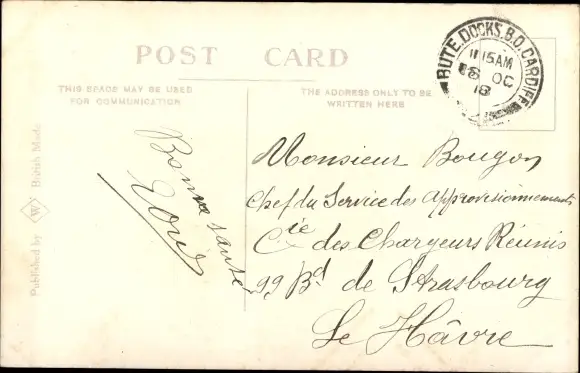 POST CARD
THIS SPACE MAY BE USED
FOR COMMUNICATION
THE ADDRESS ONLY TO BE
WRITTEN HERE
BUTE. DOCKS. B.O. CARDIFF
11 15 AM
OC
Published by W British Made
Bonne santé
Monsieur Bougon
Chef du Service des Approvisionnements
Cie des Chargeurs Réunis
99 Bd de Strasbourg
Le Hâvre